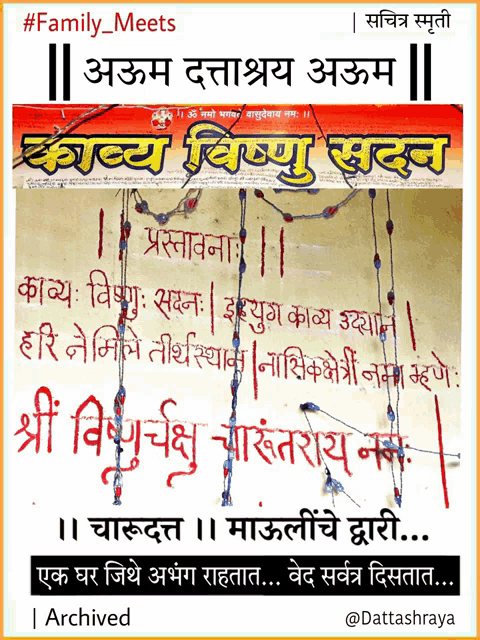 #Family_Meets
| सचित्र स्मृती
|| अऊम दत्ताश्रय अऊम ||
।। ॐ नमो भगवते वासुदेवाय नमः ।।
काव्य विष्णु सदन
|| प्रस्तावनाः ||
काव्यः विष्णुः सदनः | इहयुग काव्य उद्यान |
हरि नेमिले तीर्थस्थान | नासिकक्षेत्रीं नमा म्हणे:
श्रीं विष्णुर्चक्षु चारूंतराय नमः |
।। चारूदत्त ।। माऊलींचे द्वारी...
एक घर जिथे अभंग राहतात... वेद सर्वत्र दिसतात...
| Archived
@Dattashraya